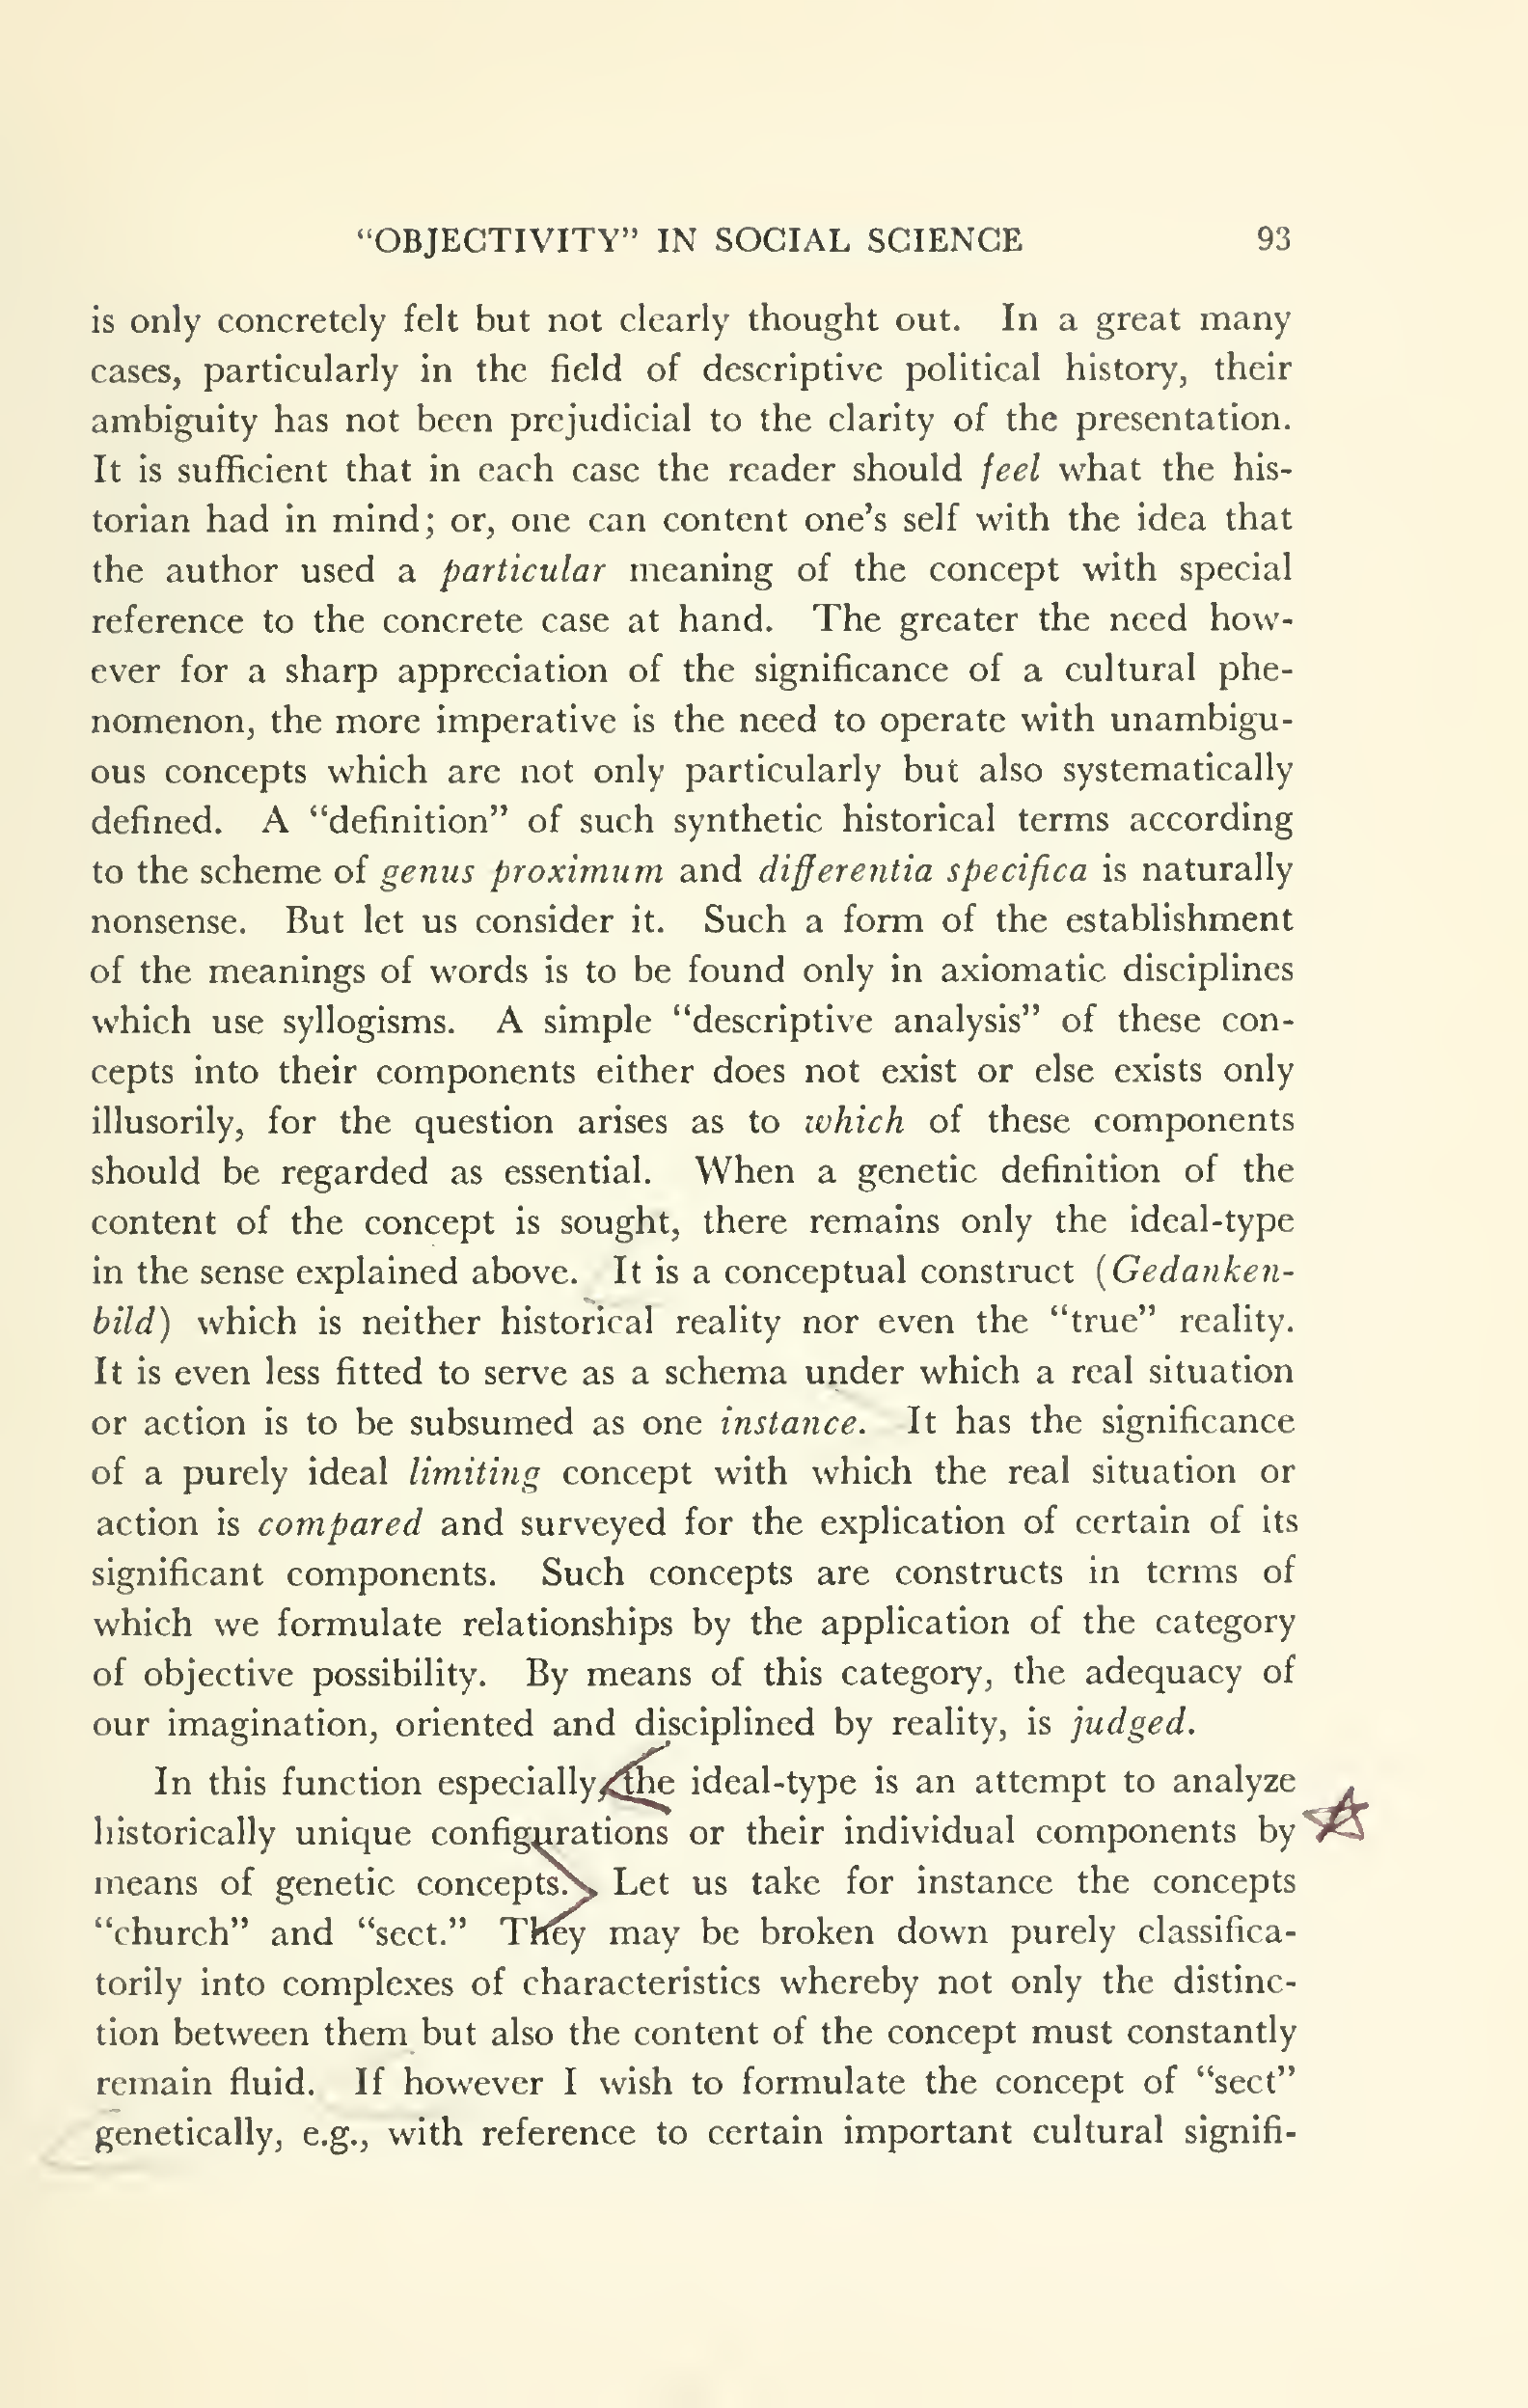 “OBJECTIVITY” IN SOCIAL SCIENCE 93
is only concretely felt but not clearly thought out. In a great many
cases, particularly in the field of descriptive political history, their
ambiguity has not been prejudicial to the clarity of the presentation.
It is sufficient that in each case the reader should feel what the his-
torian had in mind; or, one can content one’s self with the idea that
the author used a particular meaning of the concept with special
reference to the concrete case at hand. The greater the need how-
ever for a sharp appreciation of the significance of a cultural phe-
nomenon, the more imperative is the need to operate with unambigu-
ous concepts which are not only particularly but also systematically
defined. A “definition” of such synthetic historical terms according
to the scheme of genus proximum and differentia specifica is naturally
nonsense. But let us consider it. Such a form of the establishment
of the meanings of words is to be found only in axiomatic disciplines
which use syllogisms. A simple “descriptive analysis” of these con-
cepts into their components either does not exist or else exists only
illusorily, for the question arises as to which of these components
should be regarded as essential. When a genetic definition of the
content of the concept is sought, there remains only the ideal-type
in the sense explained above. It is a conceptual construct (Gedanken-
bild) which is neither historical reality nor even the “true” reality.
It is even less fitted to serve as a schema under which a real situation
or action is to be subsumed as one instance. It has the significance
of a purely ideal limiting concept with which the real situation or
action is compared and surveyed for the explication of certain of its
significant components. Such concepts are constructs in terms of
which we formulate relationships by the application of the category
of objective possibility. By means of this category, the adequacy of
our imagination, oriented and disciplined by reality, is judged.
In this function especially, the ideal-type is an attempt to analyze
historically unique configurations or their individual components by
means of genetic concepts. Let us take for instance the concepts
“church” and “sect.” They may be broken down purely classifica-
torily into complexes of characteristics whereby not only the distinc-
tion between them but also the content of the concept must constantly
remain fluid. If however I wish to formulate the concept of “sect”
genetically, e.g., with reference to certain important cultural signifi-